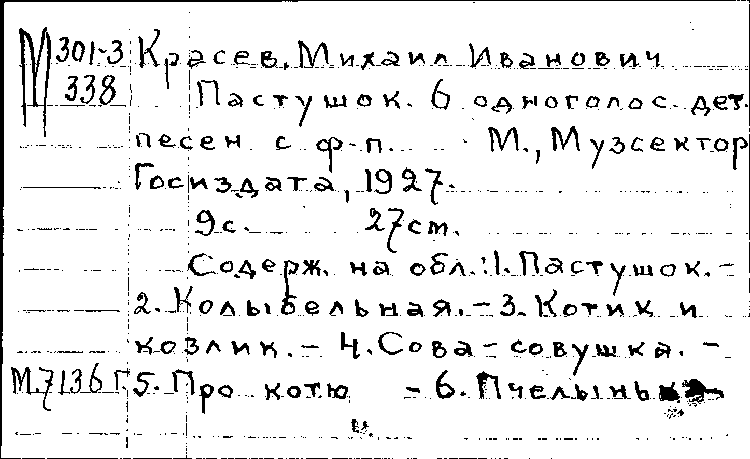 М 301-3 Красев, Михаил Иванович
338 Пастушок. 6 одноголос. дет.
песен с ф-п. М., Музсектор
Госиздата, 1927.
9с. 27см.
Содерж. на обл.: 1. Пастушок. –
2. Колыбельная. – 3. Котик и
козлик. – 4. Сова-совушка. –
М.7136 Г. 5. Про котю – 6. Пчелынька